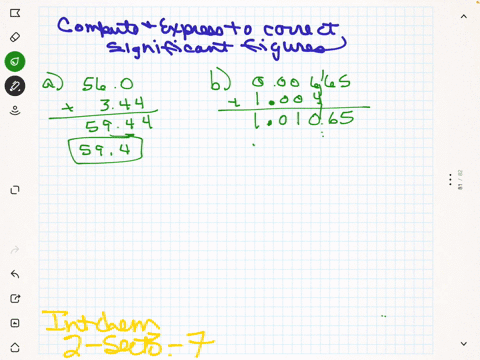 Compute + Express to correct
significant figures
a) 56.0
+ 3.44
59.44
59.4
b) 0.00665
+ 1.004
1.01065
Intchem
2-Sect3-7